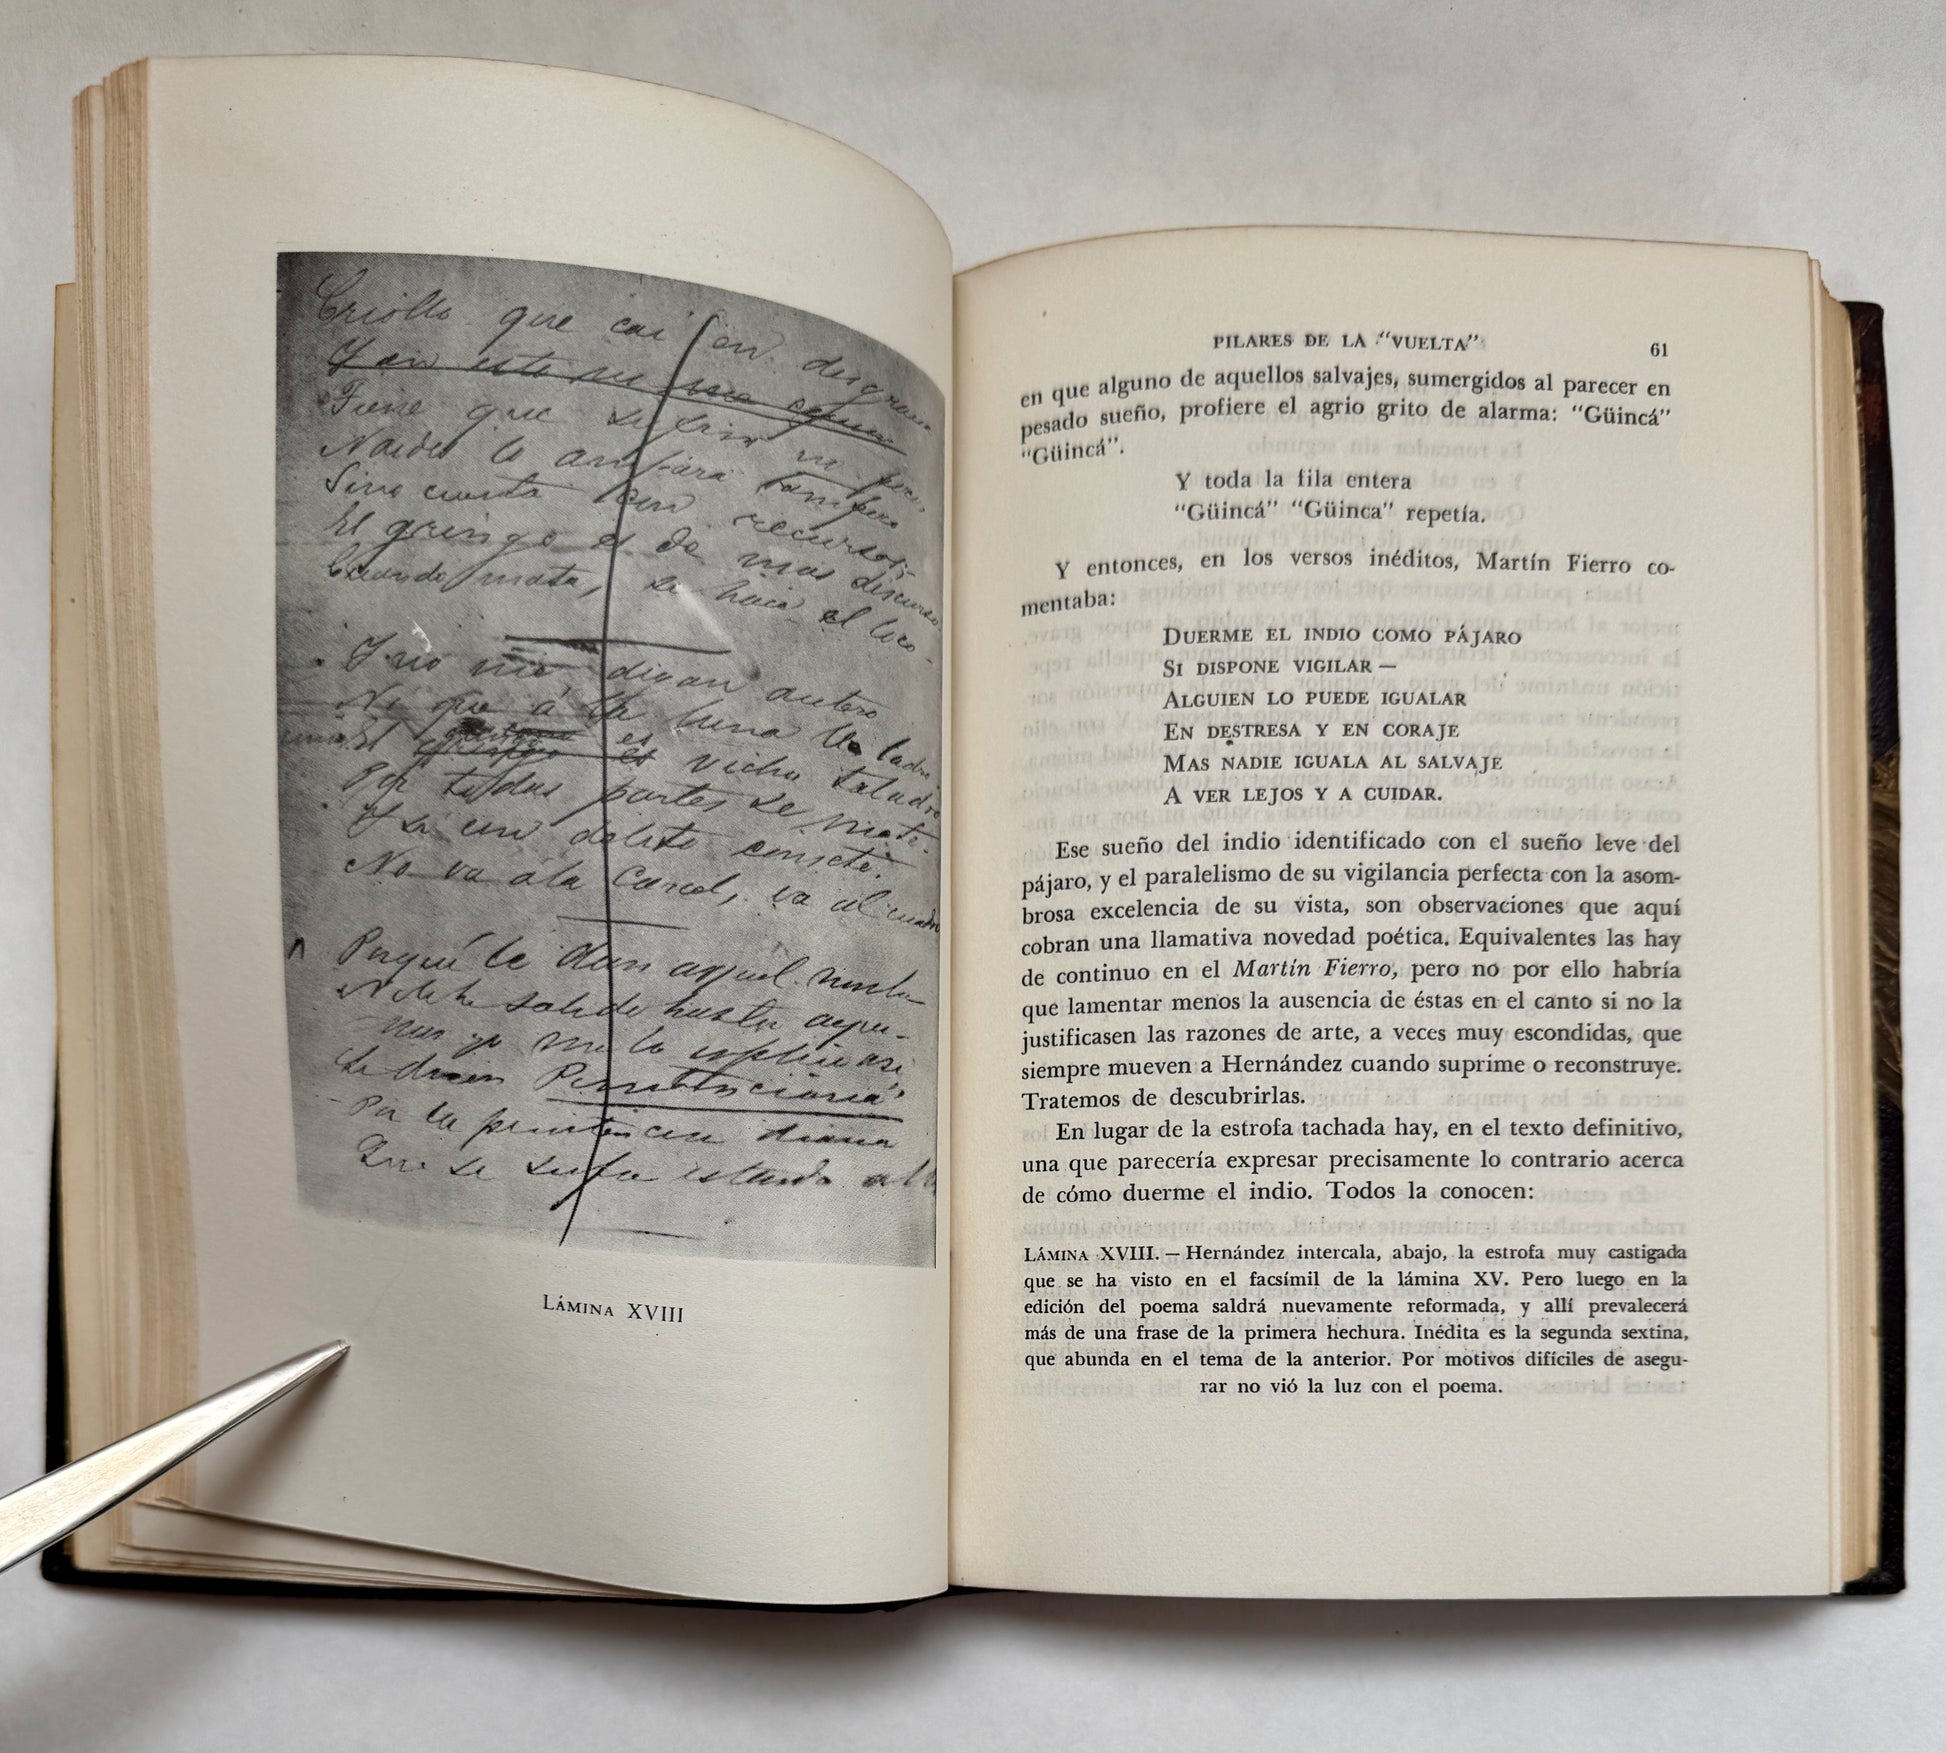 Criollo que cai en desgracia
Tiene que sufrir no poco,
Naides lo ampara tampoco
Sino cuenta con recursos;
El gringo es de mas discurso
Cuando mata, se hace el loco.
Y no me digan autero
Ni que á la luna le ladro
El es vicho taladro
Por todas partes se mete.
Y si un delito comete.
No va á la Carcel, va al cuadro
Porqué le dan aquel nombre
solido hasta aqui
mas yo me lo esplico asi
Le dicen Penitenciaria
Por la penitencia diaria
Que se sufre estando alli
Lámina XVIII
PILARES DE LA "VUELTA" 61
en que alguno de aquellos salvajes, sumergidos al parecer en
pesado sueño, profiere el agrio grito de alarma: "Güincá"
"Güincá".
Y toda la fila entera
"Güincá" "Güinca" repetía.
Y entonces, en los versos inéditos, Martín Fierro co-
mentaba:
DUERME EL INDIO COMO PÁJARO
SI DISPONE VIGILAR —
ALGUIEN LO PUEDE IGUALAR
EN DESTRESA Y EN CORAJE
MAS NADIE IGUALA AL SALVAJE
A VER LEJOS Y A CUIDAR.
Ese sueño del indio identificado con el sueño leve del
pájaro, y el paralelismo de su vigilancia perfecta con la asom-
brosa excelencia de su vista, son observaciones que aquí
cobran una llamativa novedad poética. Equivalentes las hay
de continuo en el Martín Fierro, pero no por ello habría
que lamentar menos la ausencia de éstas en el canto si no la
justificasen las razones de arte, a veces muy escondidas, que
siempre mueven a Hernández cuando suprime o reconstruye.
Tratemos de descubrirlas.
En lugar de la estrofa tachada hay, en el texto definitivo,
una que parecería expresar precisamente lo contrario acerca
de cómo duerme el indio. Todos la conocen:
LÁMINA XVIII. — Hernández intercala, abajo, la estrofa muy castigada
que se ha visto en el facsímil de la lámina XV. Pero luego en la
edición del poema saldrá nuevamente reformada, y allí prevalecerá
más de una frase de la primera hechura. Inédita es la segunda sextina,
que abunda en el tema de la anterior. Por motivos difíciles de asegu-
rar no vió la luz con el poema.